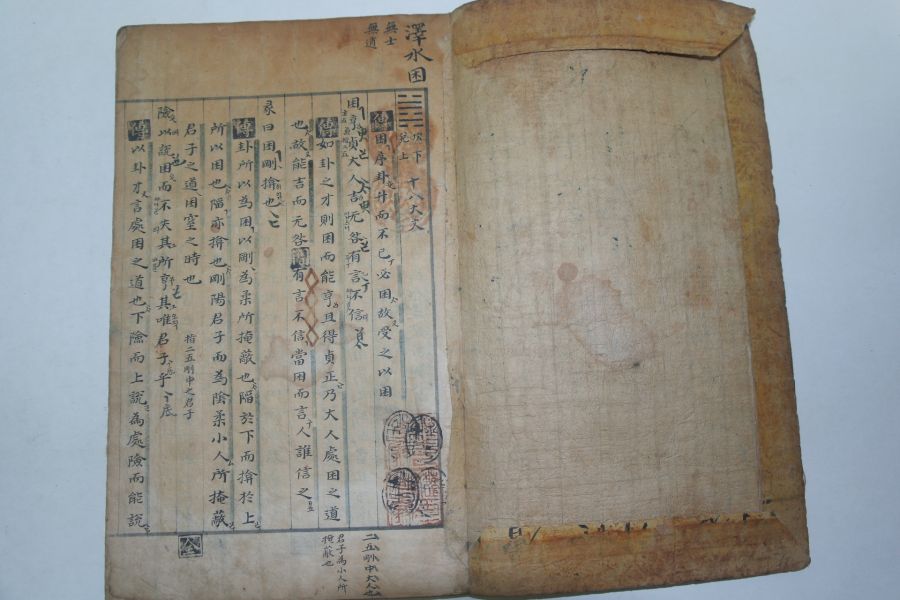 澤水困
無士
無適
坎下
兌上
十八大文
傳困序卦升而不已必困故受之以困
困亨貞大人吉无咎有言不信
傳如卦之才則困而能亨且得貞正乃大人處困之道
也故能吉而无咎 有言不信當困而言人誰信之
彖曰困剛揜也
傳卦所以為困以剛為柔所掩蔽也陷於下而揜於上
所以困也陷亦揜也剛陽君子而為陰柔小人所掩蔽
君子之道困窒之時也 指二五剛中之君子
險以說困而不失其所亨其唯君子乎
傳以卦才言處困之道也下險而上說為處險而能說
二五剛中大人也
君子為小人所
掩蔽也